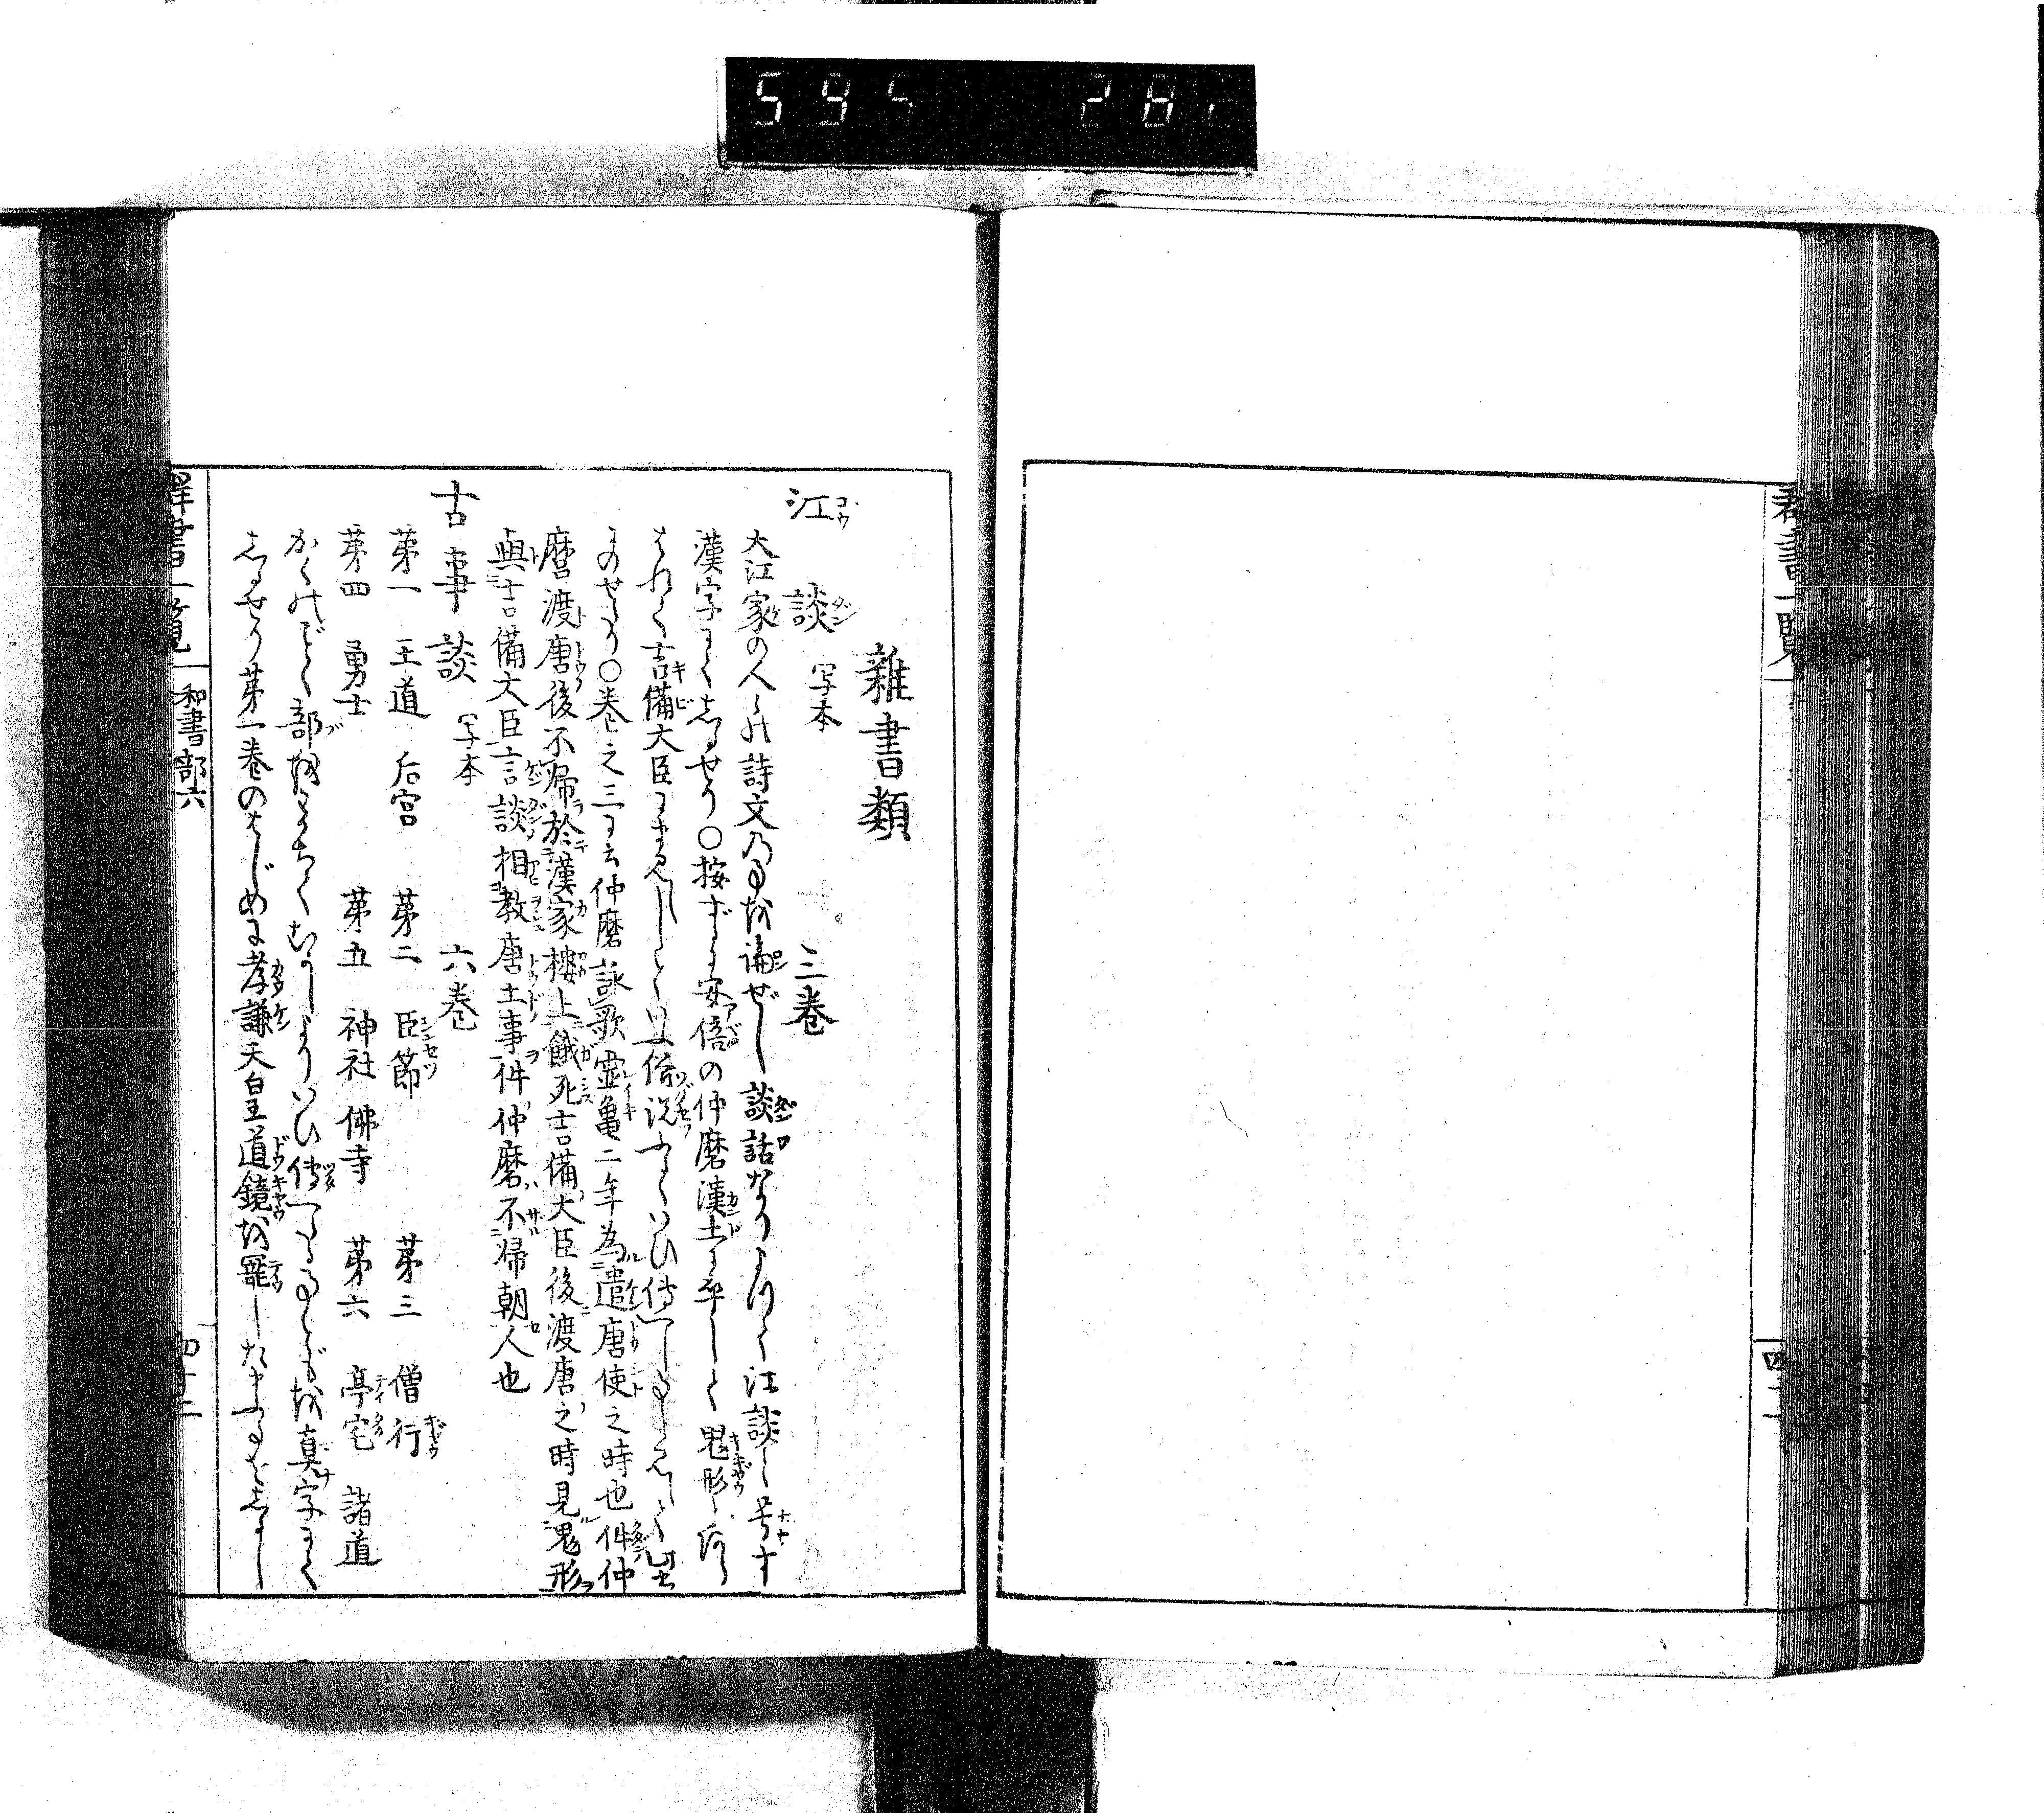 595 28
群書一覧
四十一
雜書類
江談 写本 三巻
大江家の人々の詩文乃事を論ぜし談話なりよりて江談と号す
漢字にてしるせり○按ずるに安倍の仲麿漢土に卒して鬼形と
吉備大臣にまみえしといふ俗説
のせたり○巻之三に云仲麿詠歌霊亀二年為遣唐使之時也件仲
麿渡唐後不帰於漢家樓上餓死吉備大臣後渡唐之時見鬼形
與吉備大臣言談相教唐土事件仲麿不帰朝人也
古事談 写本 六巻
第一 王道 后宮 第二 臣節 第三 僧行
第四 勇士 第五 神社 佛寺 第六 亭宅 諸道
かくのごとく部をわかちてむかしよりいひ傳へたる事どもを真字にて
しるせり第一巻のはじめに孝謙天皇道鏡を寵したまふ事をしるし
群書一覧 和書部六 四十二